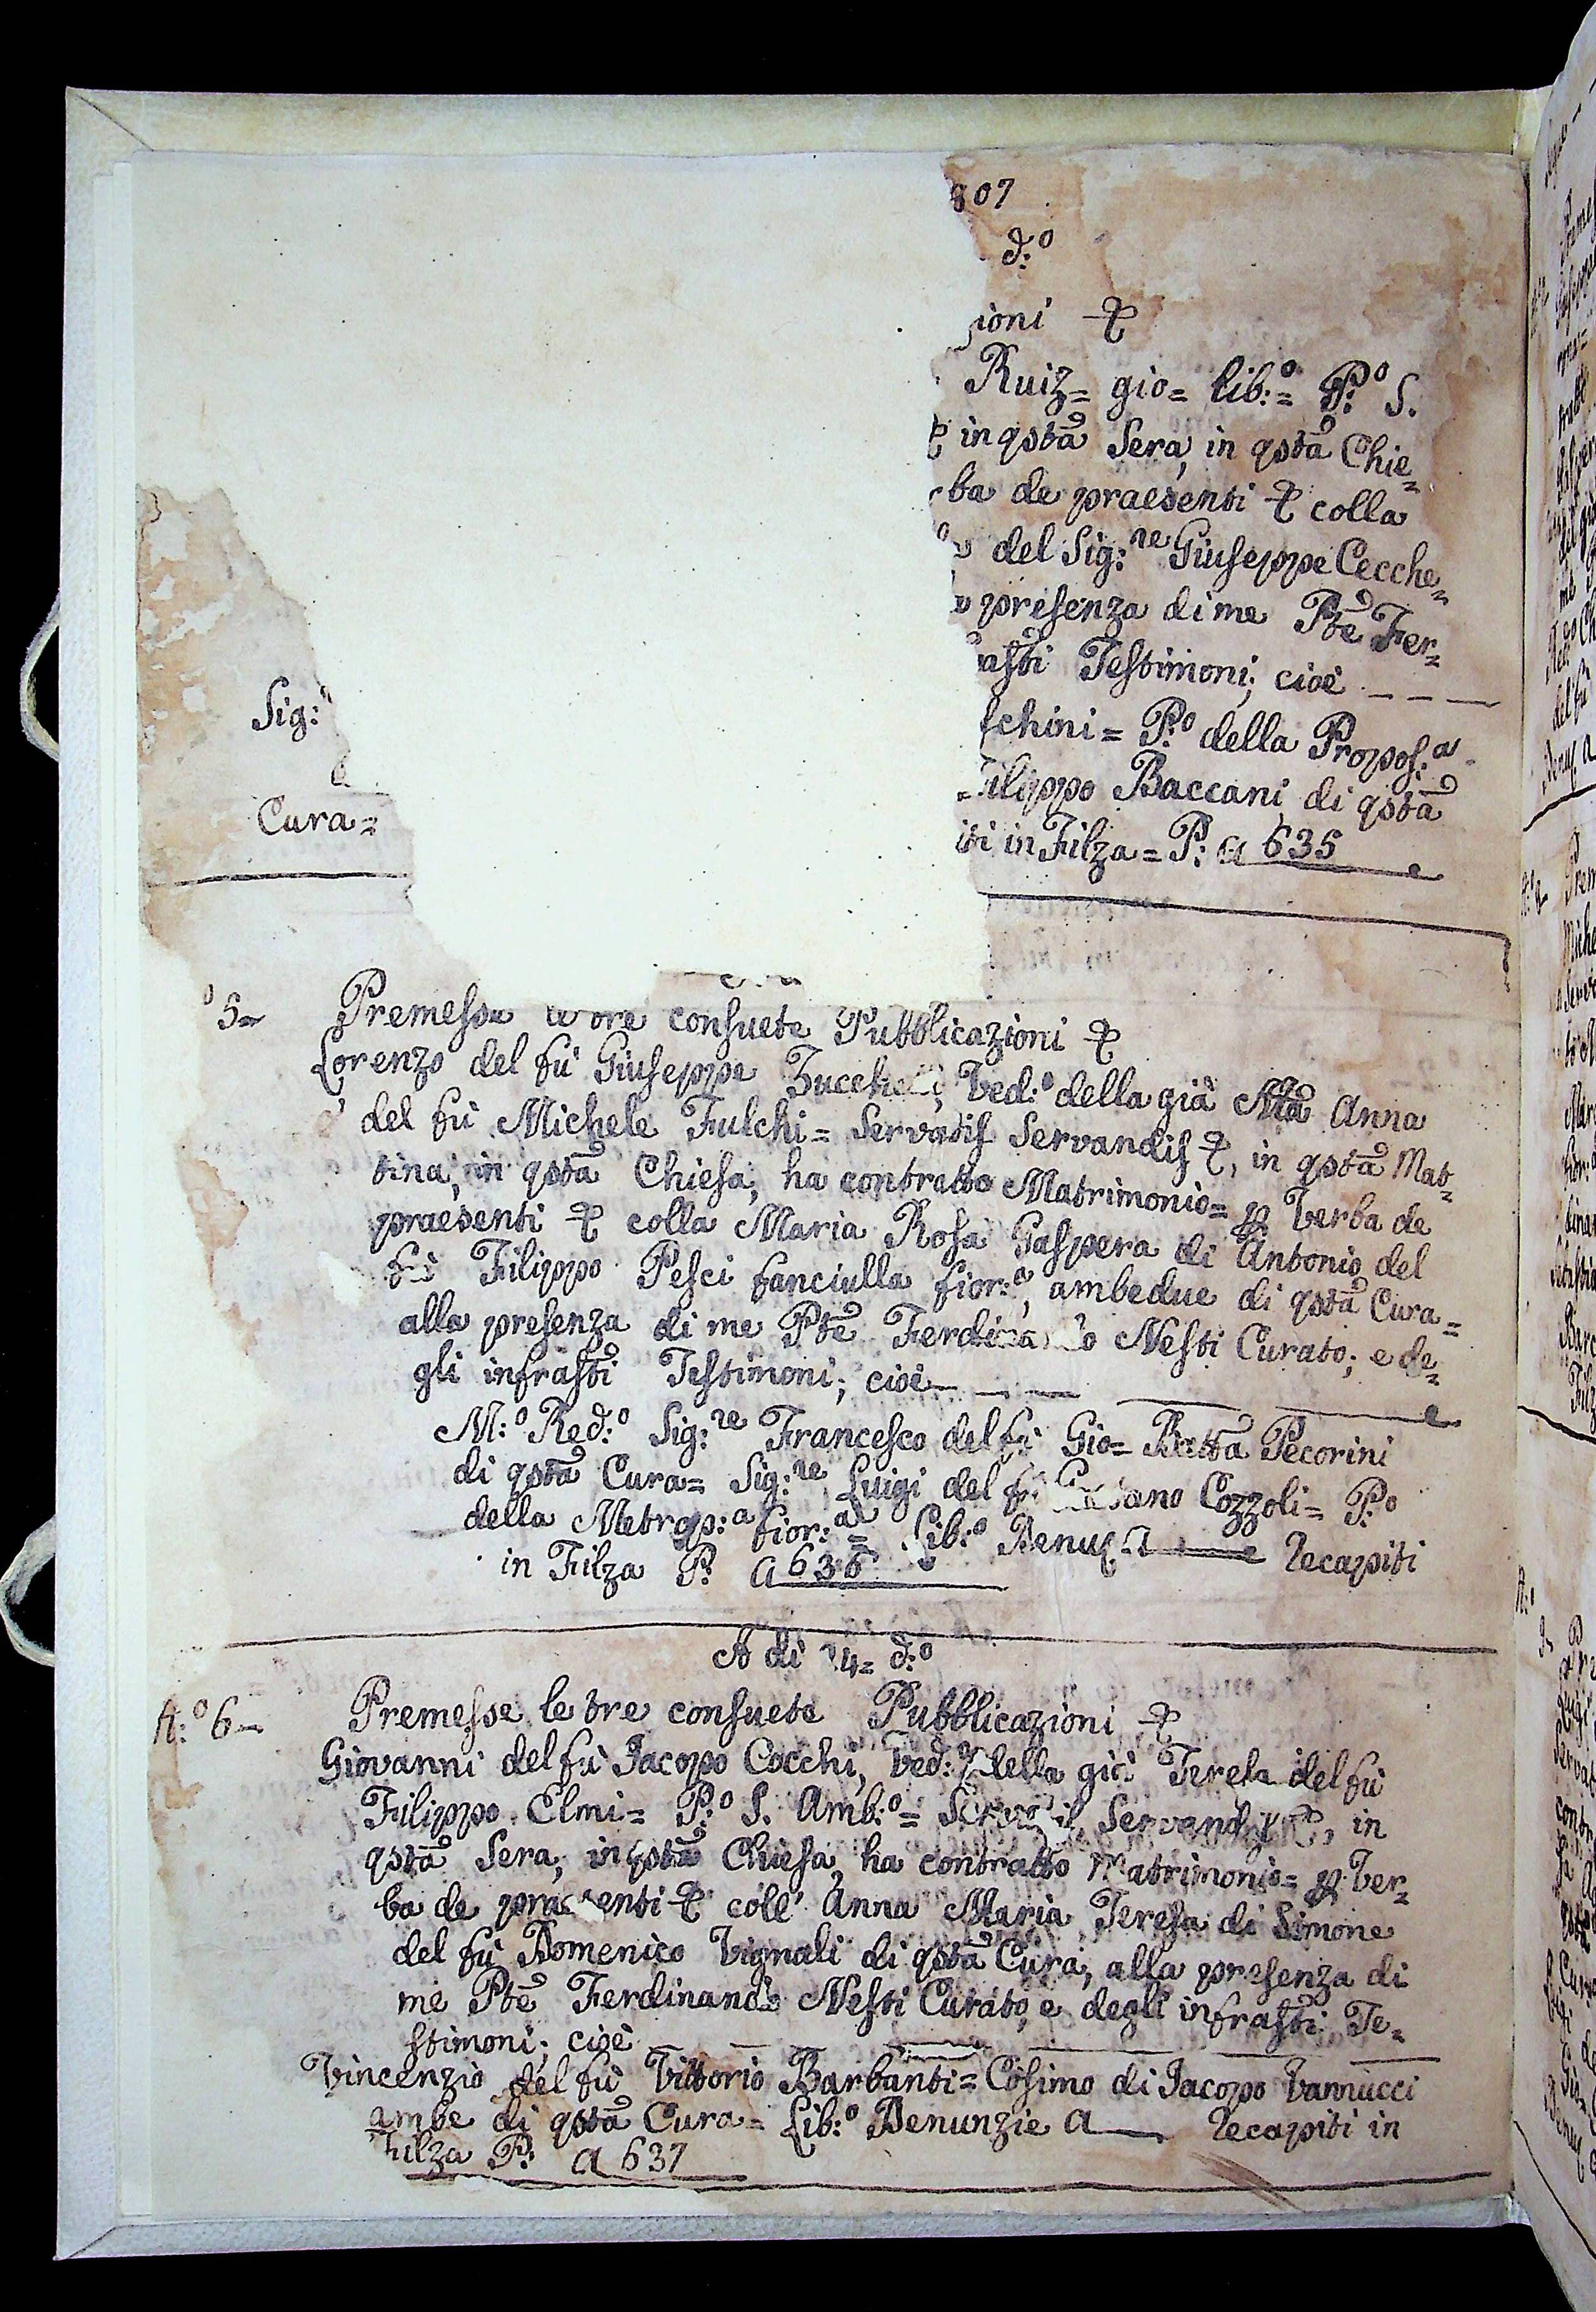 807
d:º
ioni &
Ruiz= gio= lib:º= P:º S.
& in qstã Sera, in qstã Chie=
ba de praesenti & colla
del Sig:re Giuseppe Cecche=
presenza di me Ptẽ Fer=
asti Testimoni; cioè
Sig:
schini = P:º della Propos:a
Filippo Baccani di qstã
Cura=
iti in Filza = P: a 635
5=
Premesse le tre consuete Pubblicazioni &
Lorenzo del fù Giuseppe Ved:º della già Mã Anna
del fù Michele Fulchi= Servatis Servandis &, in qstã Mat=
tina, in qstã Chiesa, ha contratto Matrimonio= p Verba de
praesenti & colla Maria Rosa Gaspera di Antonio del
fù Filippo Pesci fanciulla fior:a, ambedue di qstã Cura=
alla presenza di me Ptẽ Ferdinando Nesti Curato; e de=
gli infrasti Testimoni; cioè
M:º Red:º Sig:re Francesco del fù Gio= Battã Pecorini
di qstã Cura= Sig:re Luigi del fù Gaetano Cozzoli= P:º
della Metrop:a fior:a= Lib:º Denuz a Recapiti
in Filza P: a 636
A dì 4= d:º
A:º 6=
Premesse le tre consuete Pubblicazioni &
Giovanni del fù Jacopo Cocchi, Ved:º della già Teresa del fù
Filippo Elmi= P:º S. Amb:º= Servatis Servandis &, in
qstã Sera, in qstã Chiesa, ha contratto Matrimonio= p Ver=
ba de praesenti & coll' Anna Maria Teresa di Simone
del fù Domenico Vignali di qstã Cura, alla presenza di
me Ptẽ Ferdinando Nesti Curato, e degli infrasti Te=
stimoni; cioè
Vincenzio del fù Vittorio Barbanti= Cosimo di Jacopo Vannucci
ambe di qstã Cura= Lib:º Denunzie a Recapiti in
Filza P: a 637